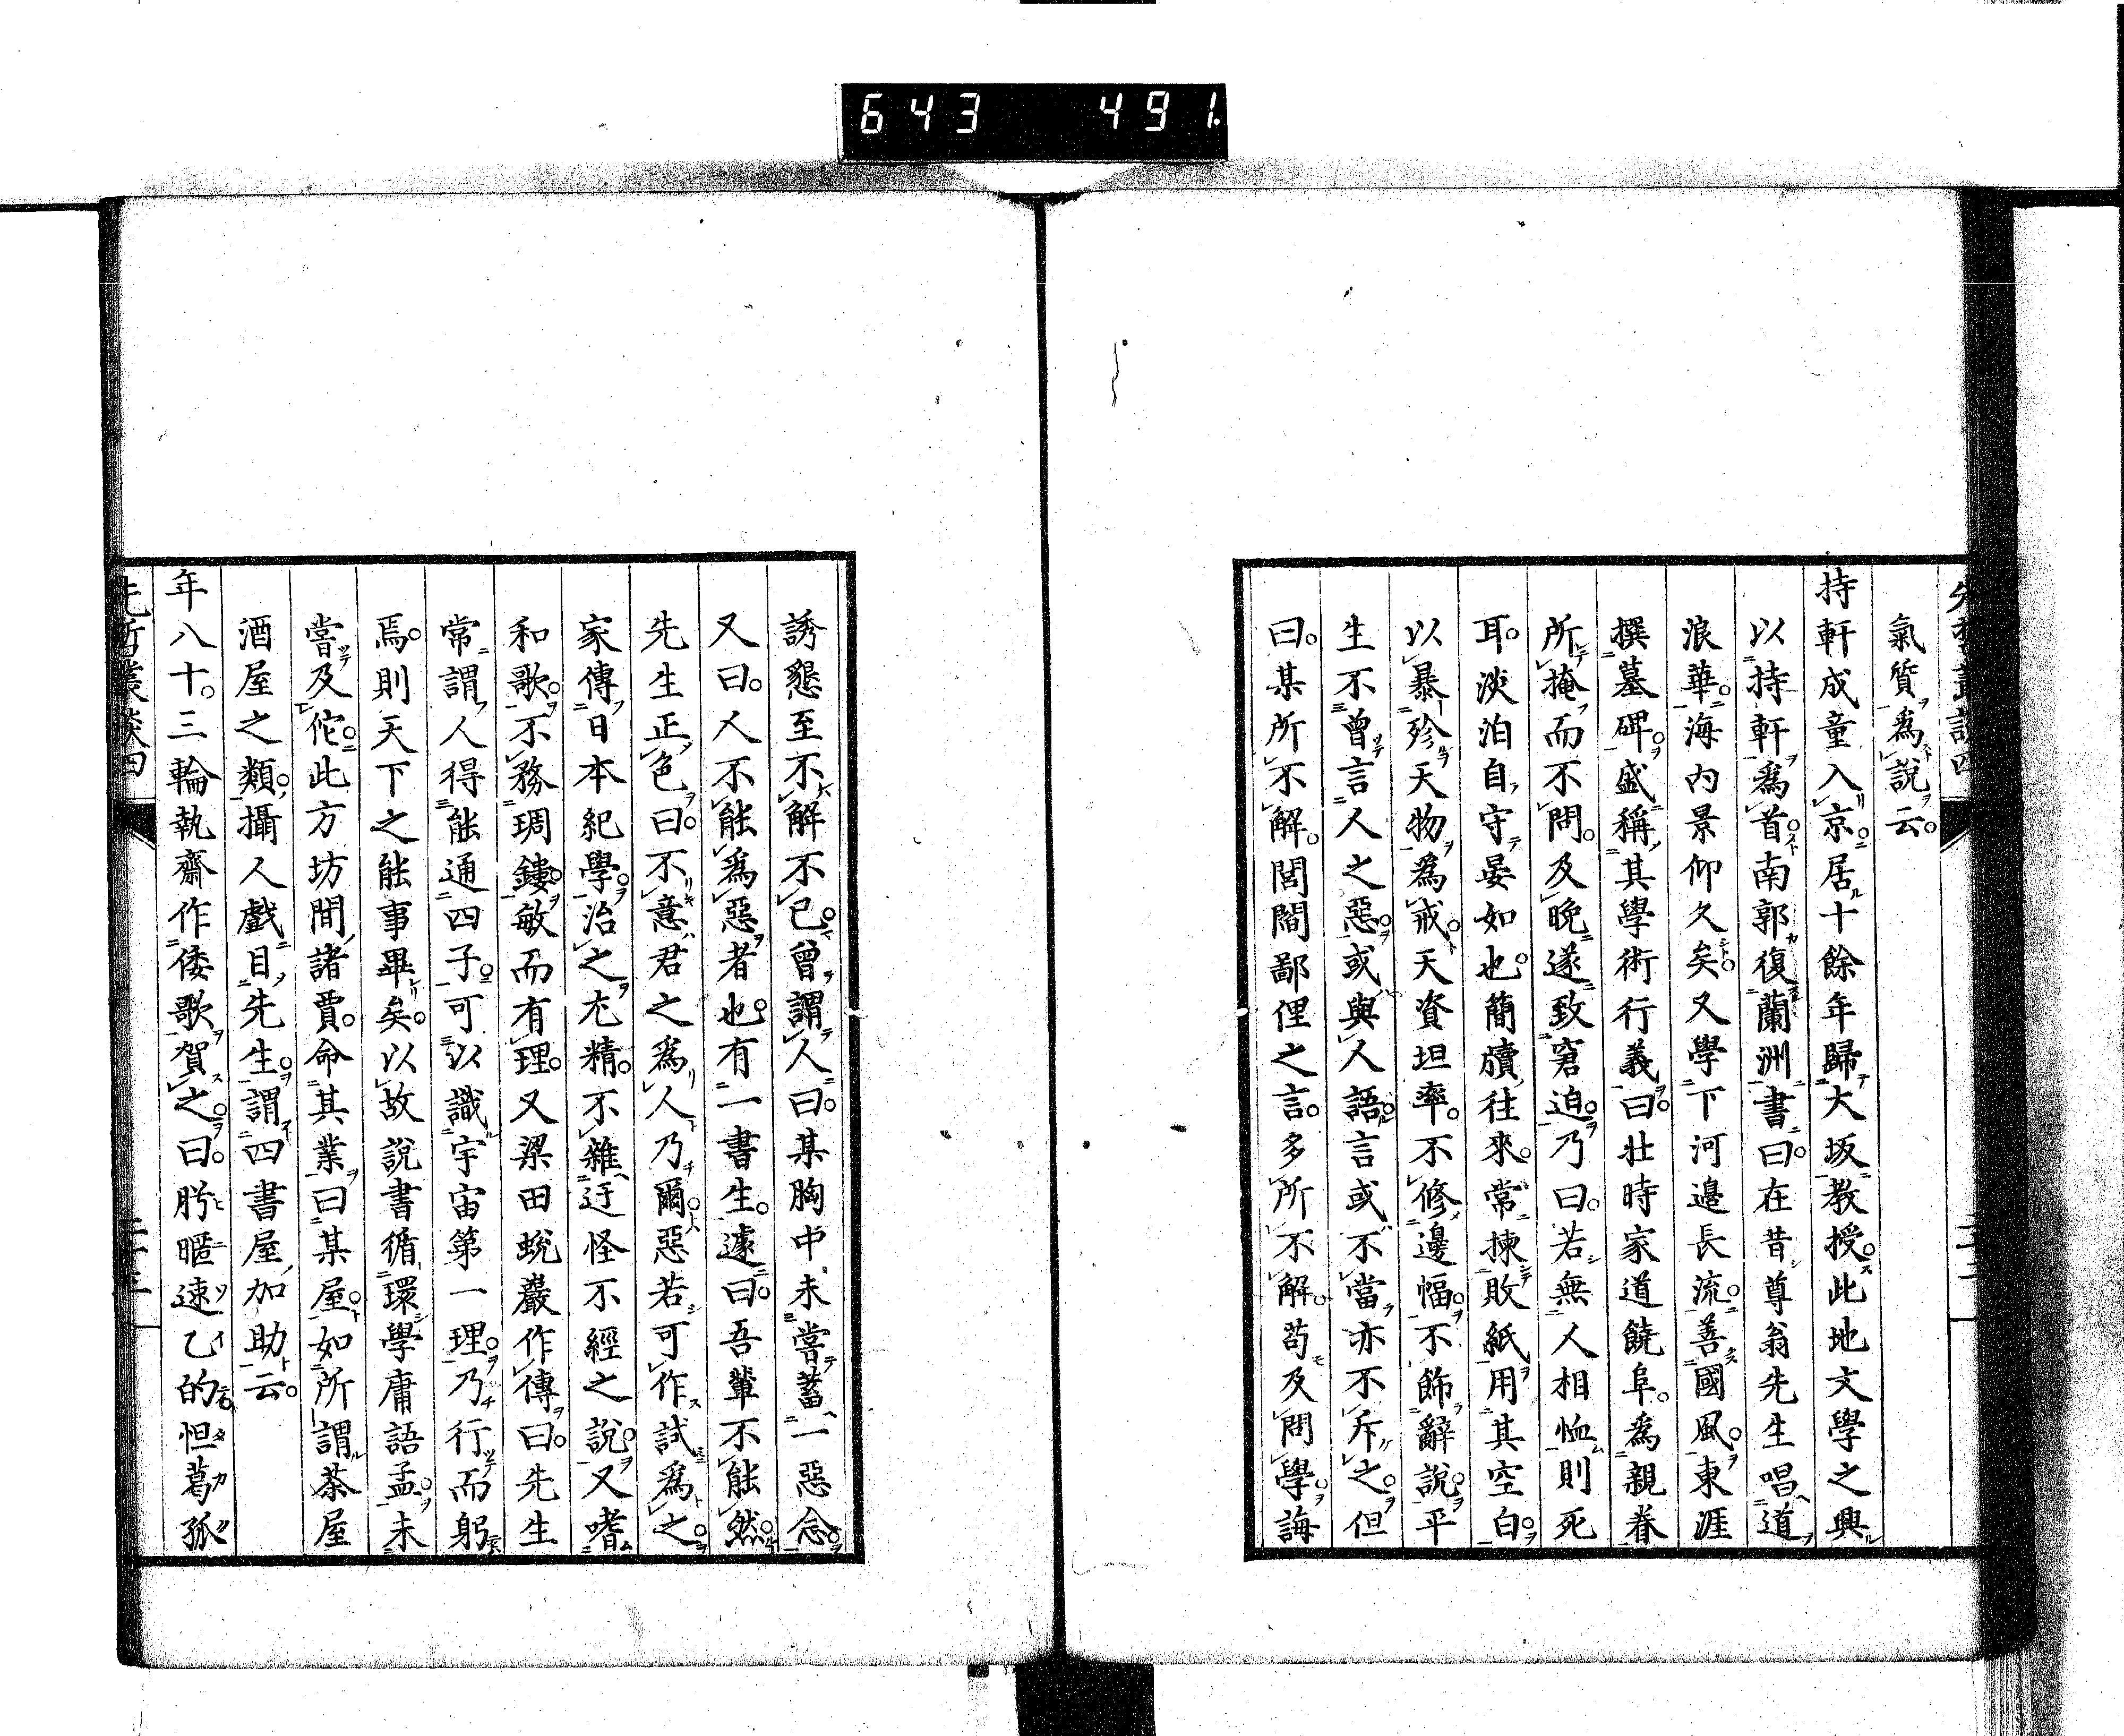 643 491
氣質爲說云。
持軒成童入京。居十餘年歸大坂教授。此地文學之興
以持軒爲首。南郭復蘭洲書曰。在昔尊翁先生唱道
浪華。海內景仰久矣。又學下河邊長流。善國風。東涯
撰墓碑。盛稱其學術行義。曰。壯時家道饒阜。爲親眷
所掩而不問。及晚遂致窘迫。乃曰。若無人相恤則死
耳。淡泊自守晏如也。簡牘往來。常揀敗紙用其空白。
以暴殄天物爲戒。天資坦率。不修邊幅。不飾辭說。平
生不曾言人之惡。或與人語。言或不當亦不斥之。但
曰。某所不解。閭閻鄙俚之言。多所不解。苟及問學。誨
誘懇至不解不已。曾謂人曰。某胸中未嘗蓄一惡念。
又曰。人不能爲惡者也。有一書生。遽曰。吾輩不能然。
先生正色曰。不意君之爲人乃爾。惡若可作試爲之。
家傳日本紀學。治之尤精。不雜迂怪不經之說。又嗜
和歌。不務琱鏤。敏而有理。又梁田蛻巖作傳曰。先生
常謂人得能通四子。可以識宇宙第一理。乃行而躬
焉。則天下之能事畢矣。以故說書循環學庸語孟。未
嘗及佗。此方坊間諸賈。命其業曰某屋。如所謂茶屋
酒屋之類。攝人戲目先生。謂四書屋加助云。
年八十。三輪執齋作倭歌賀之。曰。肹暱速乙的怛葛孤
先哲叢談四